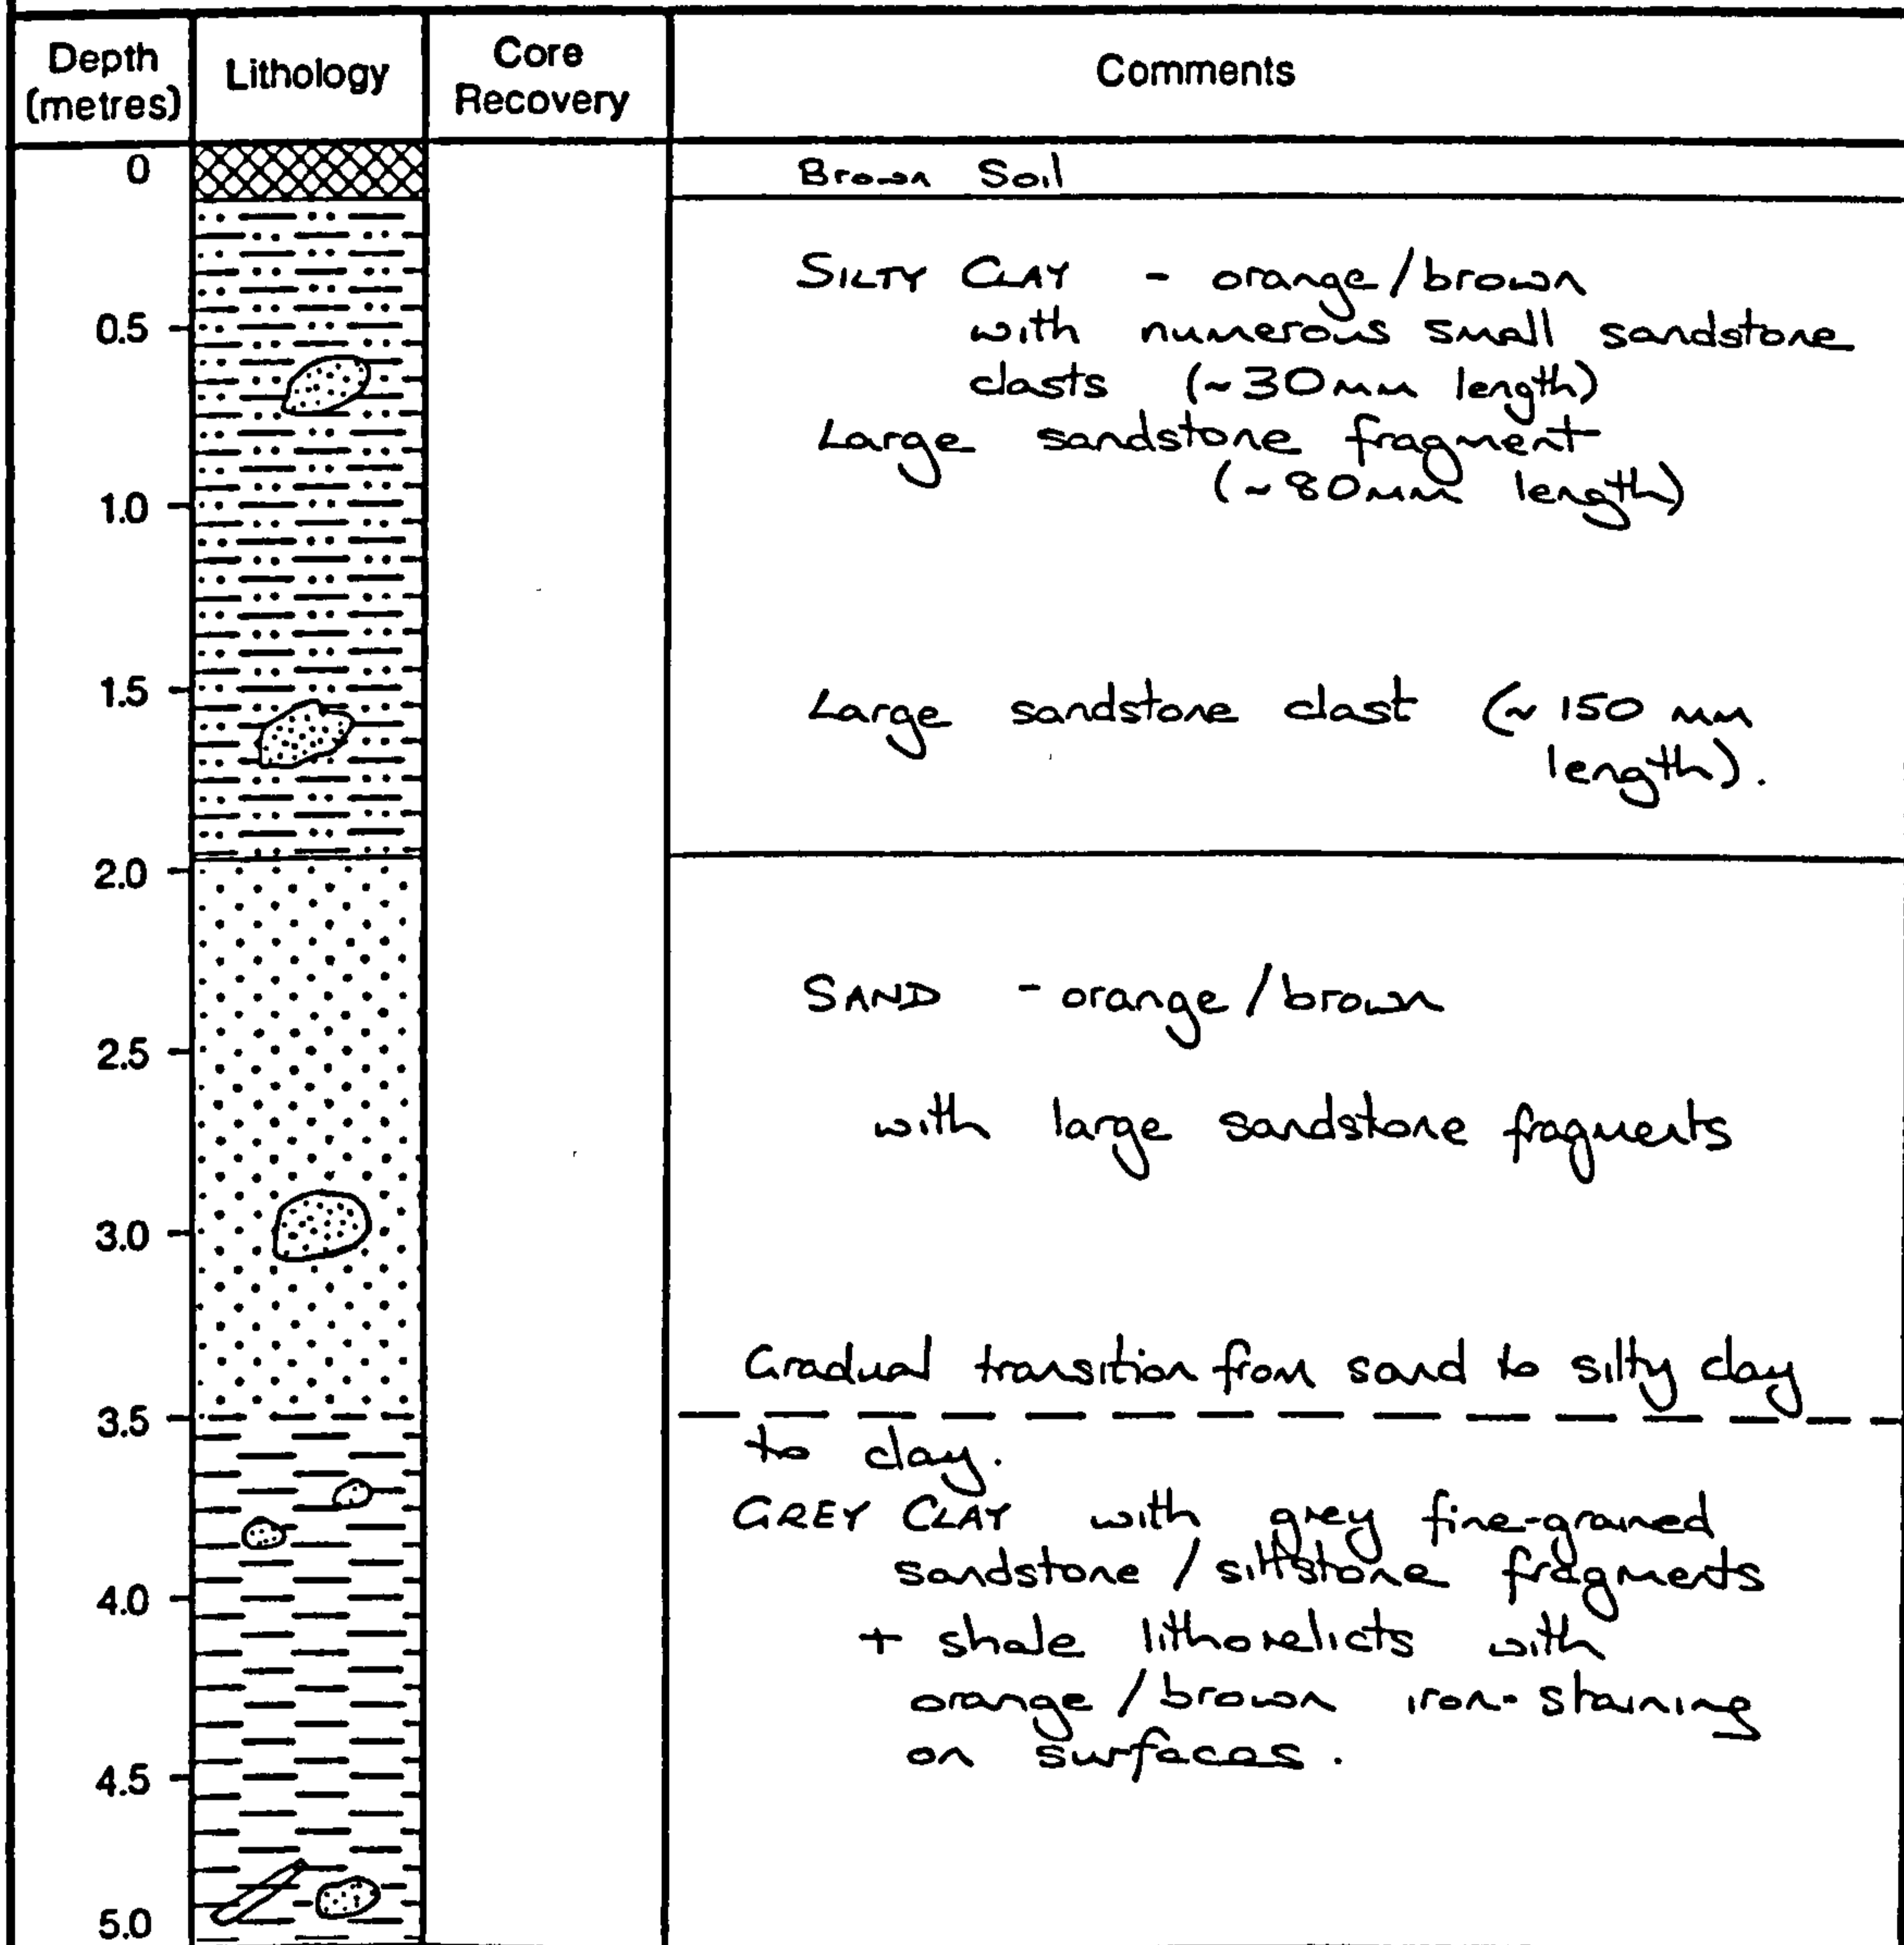 Depth
(metres)
Lithology
Core
Recovery
Comments
0
Brown Soil
SILTY CLAY - orange/brown
with numerous small sandstone
clasts (~30mm length)
0.5
Large sandstone fragment
(~80mm length)
1.0
1.5
Large sandstone clast (~150 mm
length).
2.0
SAND - orange/brown
2.5
with large sandstone fragments
3.0
Gradual transition from sand to silty clay
3.5
to clay.
GREY CLAY with grey fine-grained
sandstone/siltstone fragments
4.0
+ shale lithorelicts with
orange/brown iron-staining
on surfaces.
4.5
5.0